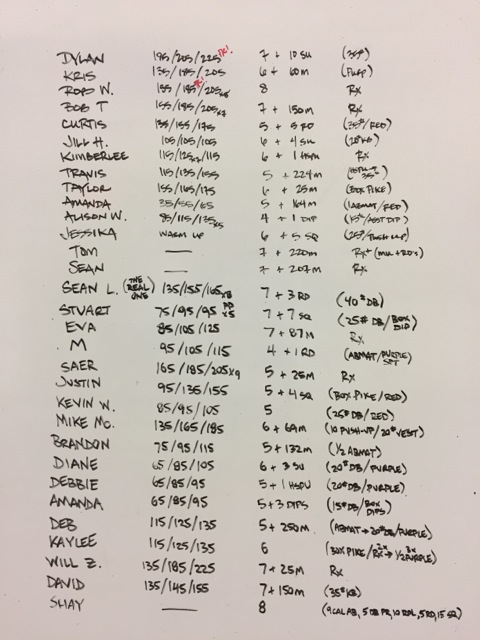 DYLAN 195/205/225 PR! 7 + 10 SU (35#)
KRIS 135/185/205 6 + 60m
ROB W. 155/185/205x8 PR! 8 Rx
BOB T 155/185/205x7 7 + 150m Rx
CURTIS 135/155/175 5 + 5 RD (25#/RED)
JILL H. 105/105/105 6 + 4 SU (20#KB)
KIMBERLEE 115/125x7/115 6 + 1 HSPU Rx
TRAVIS 115/135/155 5 + 224m 35#
TAYLOR 155/165/175 6 + 25m (BOX PIKE)
AMANDA 35/55/65 5 + 164m (1ABMAT/RED)
ALISON W. 95/115/135x5 4 + 1 DIP (15#/ASST DIP)
JESSIKA WARM UP 6 + 5 SQ (25#/PUSH UP)
TOM — 7 + 220m Rx+ (MU + RD's)
SEAN — 7 + 207m Rx
SEAN L. (THE REAL ONE) 135/155/165x8 7 + 3 RD (40# DB)
STUART 75/95/95 x5 7 + 7 SQ (25# DB/BOX DIP)
EVA 85/105/125 7 + 87m Rx
M 95/105/115 4 + 1 RD (ABMAT/PURPLE)
SAER 165/185/205x9 5 + 25m Rx
JUSTIN 95/135/155 5 + 4 SQ (BOX PIKE/RED)
KEVIN W. 85/95/105 5 (25# DB/RED)
MIKE MC. 135/165/185 6 + 69m (10 PUSH-UP/20# VEST)
BRANDON 75/95/115 5 + 132m (1/2 ABMAT)
DIANE 65/85/105 6 + 3 SU (20# DB/PURPLE)
DEBBIE 65/85/95 5 + 1 HSPU (20# DB/PURPLE)
AMANDA 65/85/95 5 + 3 DIPS (15# DB/BOX DIPS)
DEB 115/125/135 5 + 250m (ABMAT → 20# DB/PURPLE)
KAYLEE 115/125/135 6 (BOX PIKE/Rx 2x → 1/2 PURPLE 3x)
WILL Z. 135/185/225 7 + 25m Rx
DAVID 135/145/155 7 + 150m (35# KB)
SHAY — 8 (9 CAL AB, 5 DB PR, 10 RDL, 5 RD, 15 SQ)